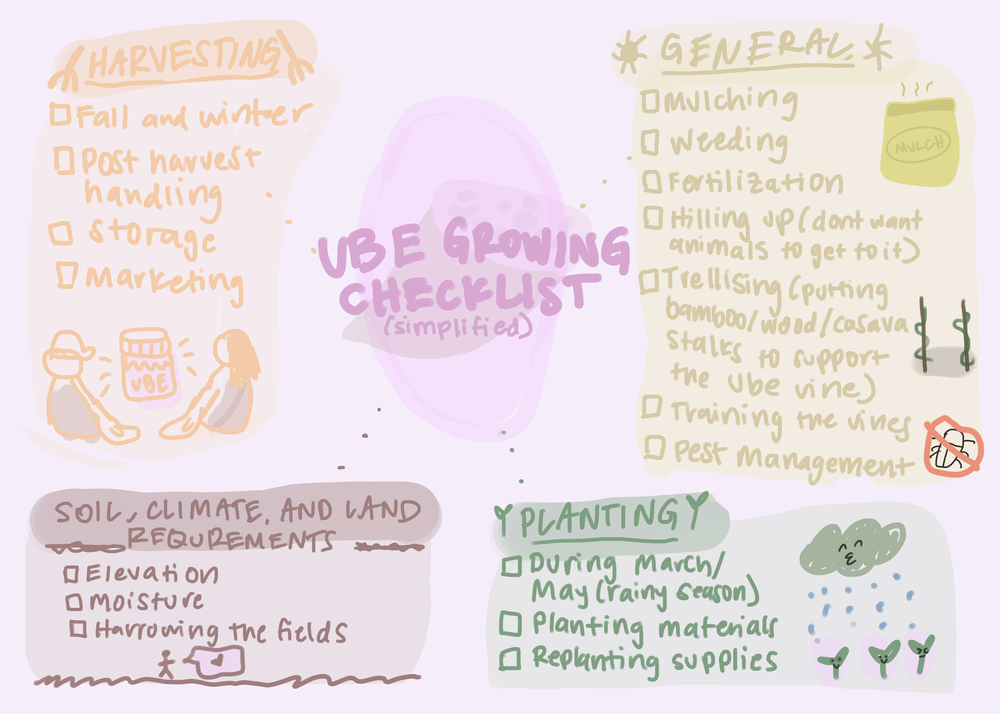 UBE GROWING
CHECKLIST
(simplified)
HARVESTING
Fall and winter
Post harvest
handling
Storage
Marketing
UBE
GENERAL
Mulching
Weeding
Fertilization
Hilling up (dont want
animals to get to it)
Trellising (putting
bamboo/wood/casava
stalks to support
the ube vine)
Training the vines
Pest Management
MULCH
SOIL, CLIMATE, AND LAND
REQUREMENTS
Elevation
Moisture
Harrowing the fields
PLANTING
During March/
May (rainy season)
Planting materials
Replanting supplies